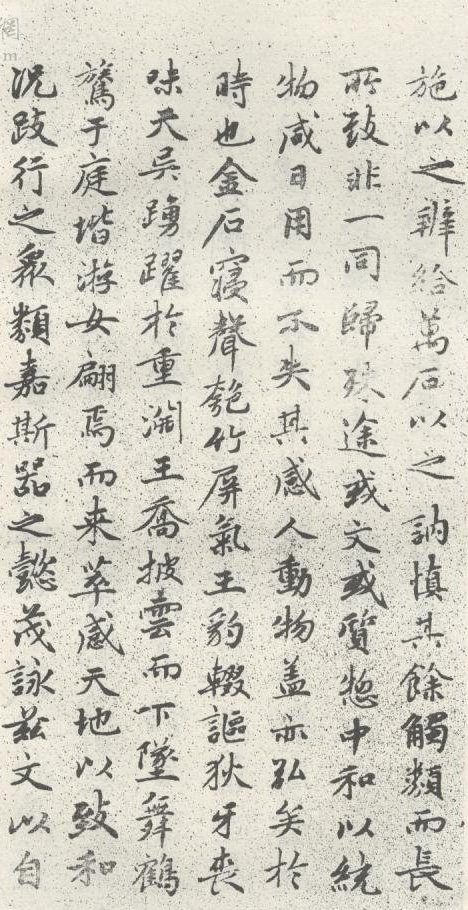 施以之辨給萬石以之訥慎其餘觸類而長
所致非一同歸殊途或文或質惣中和以統
物咸日用而不失其感人動物盖亦弘矣於
時也金石寢聲匏竹屏氣王豹輟謳狄牙丧
味天吴踴躍於重淵王喬披雲而下墜舞鶴
鸑于庭堦游女翩焉而来萃感天地以致和
况跂行之眾類嘉斯器之懿茂詠茲文以自
網
m